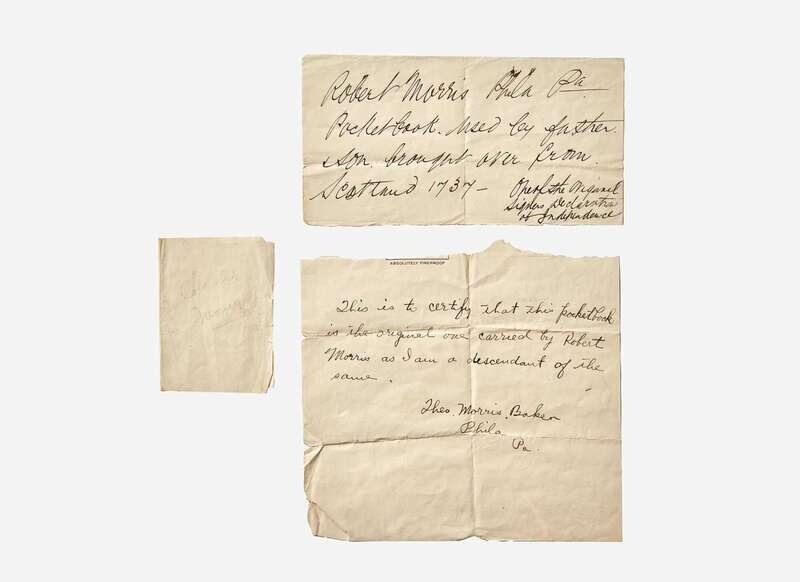 Robert Morris Phila Pa
Pocketbook used by father
& son. brought over from
Scotland 1737—
One of the Original
Signers Declaration
of Independence
ABSOLUTELY FIREPROOF
This is to certify that this pocketbook
is the original one carried by Robert
Morris as I am a descendant of the
same.
Theo. Morris. Baker
Phila
Pa.